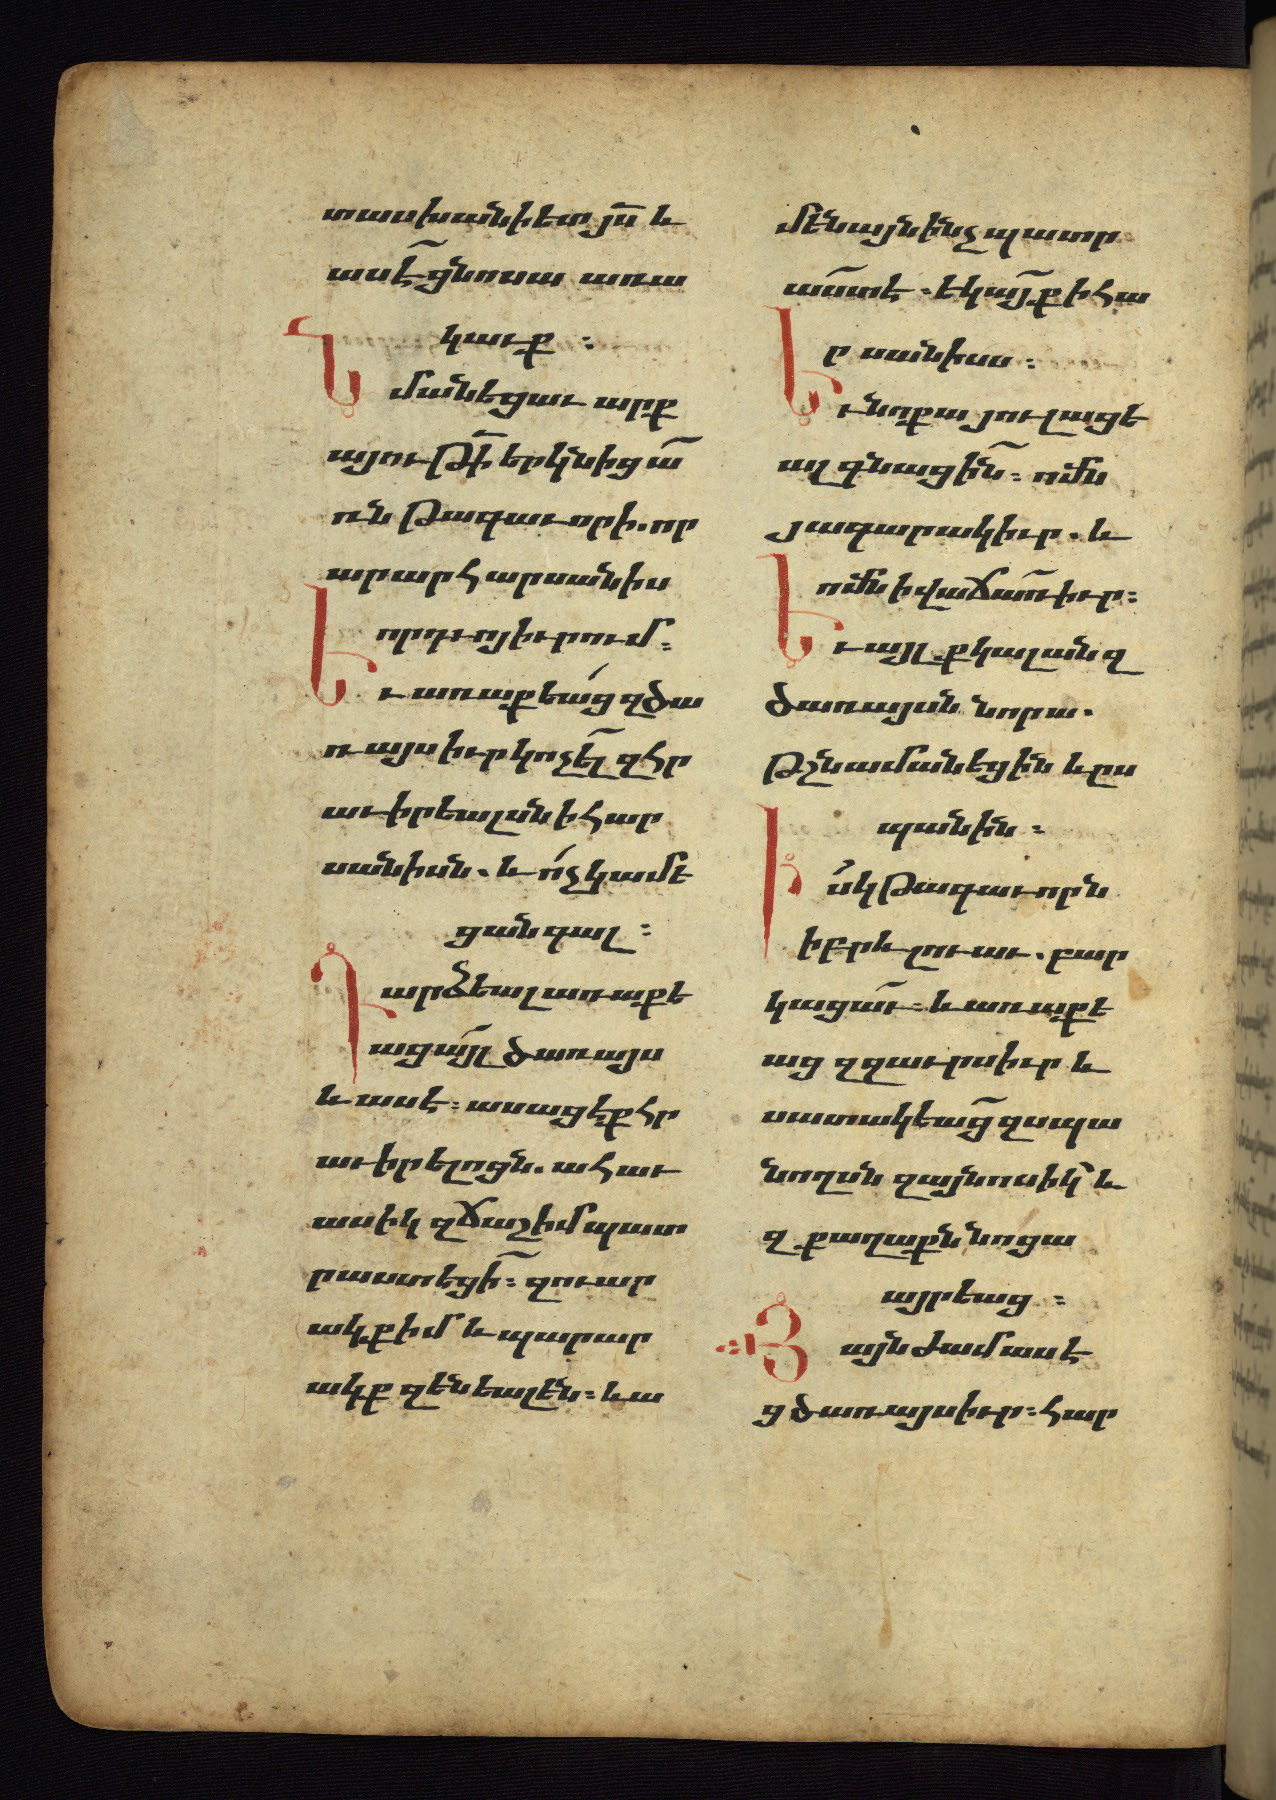 տասխանի ետ յս̅ և
ասէ ց̅նոսա առա
կաւք :
Նմանեցաւ արք
այութի̅ երկնից ա̅
ռն թագաւորի . որ
արար հարսանիս
որդւոյ իւրում :
Եւ առաքեաց զծա
ռայս իւր կոչել̅ զհր
աւիրեալսն ի հար
սանիսն . և ո՛չ կամէ
ցան գալ :
Դարձեալ առաքե
աց ա̅յլ ծառայս
և ասէ : ասացէք հր
աւիրելոցն . ահաւ
ասիկ զճաշ իմ պատ
րաստեցի̅ : զուար
ակք իմ և պարար
ակք զենեալ են : և ա
մենայն ինչ պատր
ա̅ստ է : եկա̅յք ի հա
րսանիսս :
Եւ նոքա յուլացե
ալ գնացի̅ն : ոմն
յագարակ իւր . և
ոմն ի վաճառ̅ իւր :
Եւ այլքն կալան զ
ծառայսն նորա .
թշնամանեցին և ըս
պանին :
Իսկ թագաւորն
իբրև լուաւ . բար
կացաւ̅ : և առաքէ
աց զզաւրս իւր և
սատակեաց̅ զսպա
նողսն զայնոսիկ և
զքաղաքն նոցա
այրեաց :
Յայնժամ ասէ
ց ծառայս իւր : հար